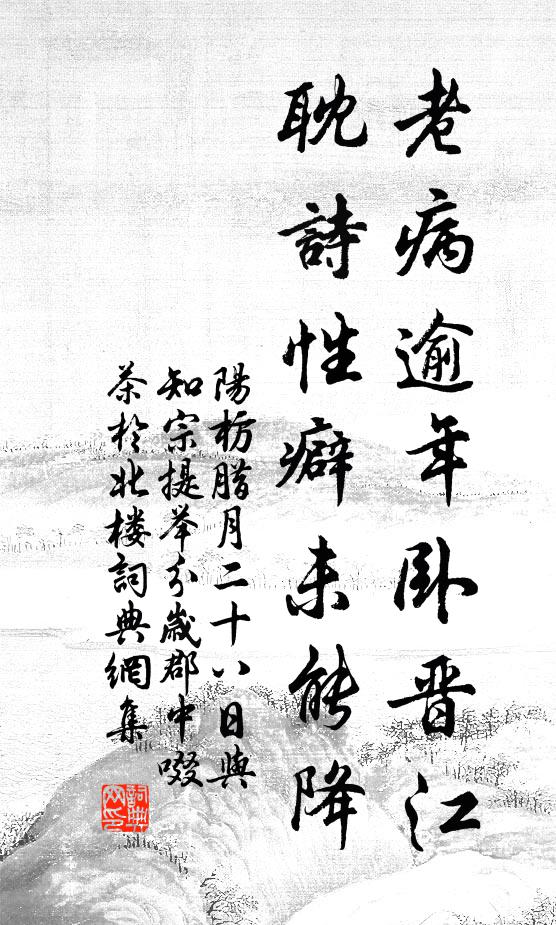 老病逾年卧晋江
耽詩性癖未能降
陽枋腊月二十八日與
知宗提举分歲郡中啜
茶於北楼詞典網集
詞典网印